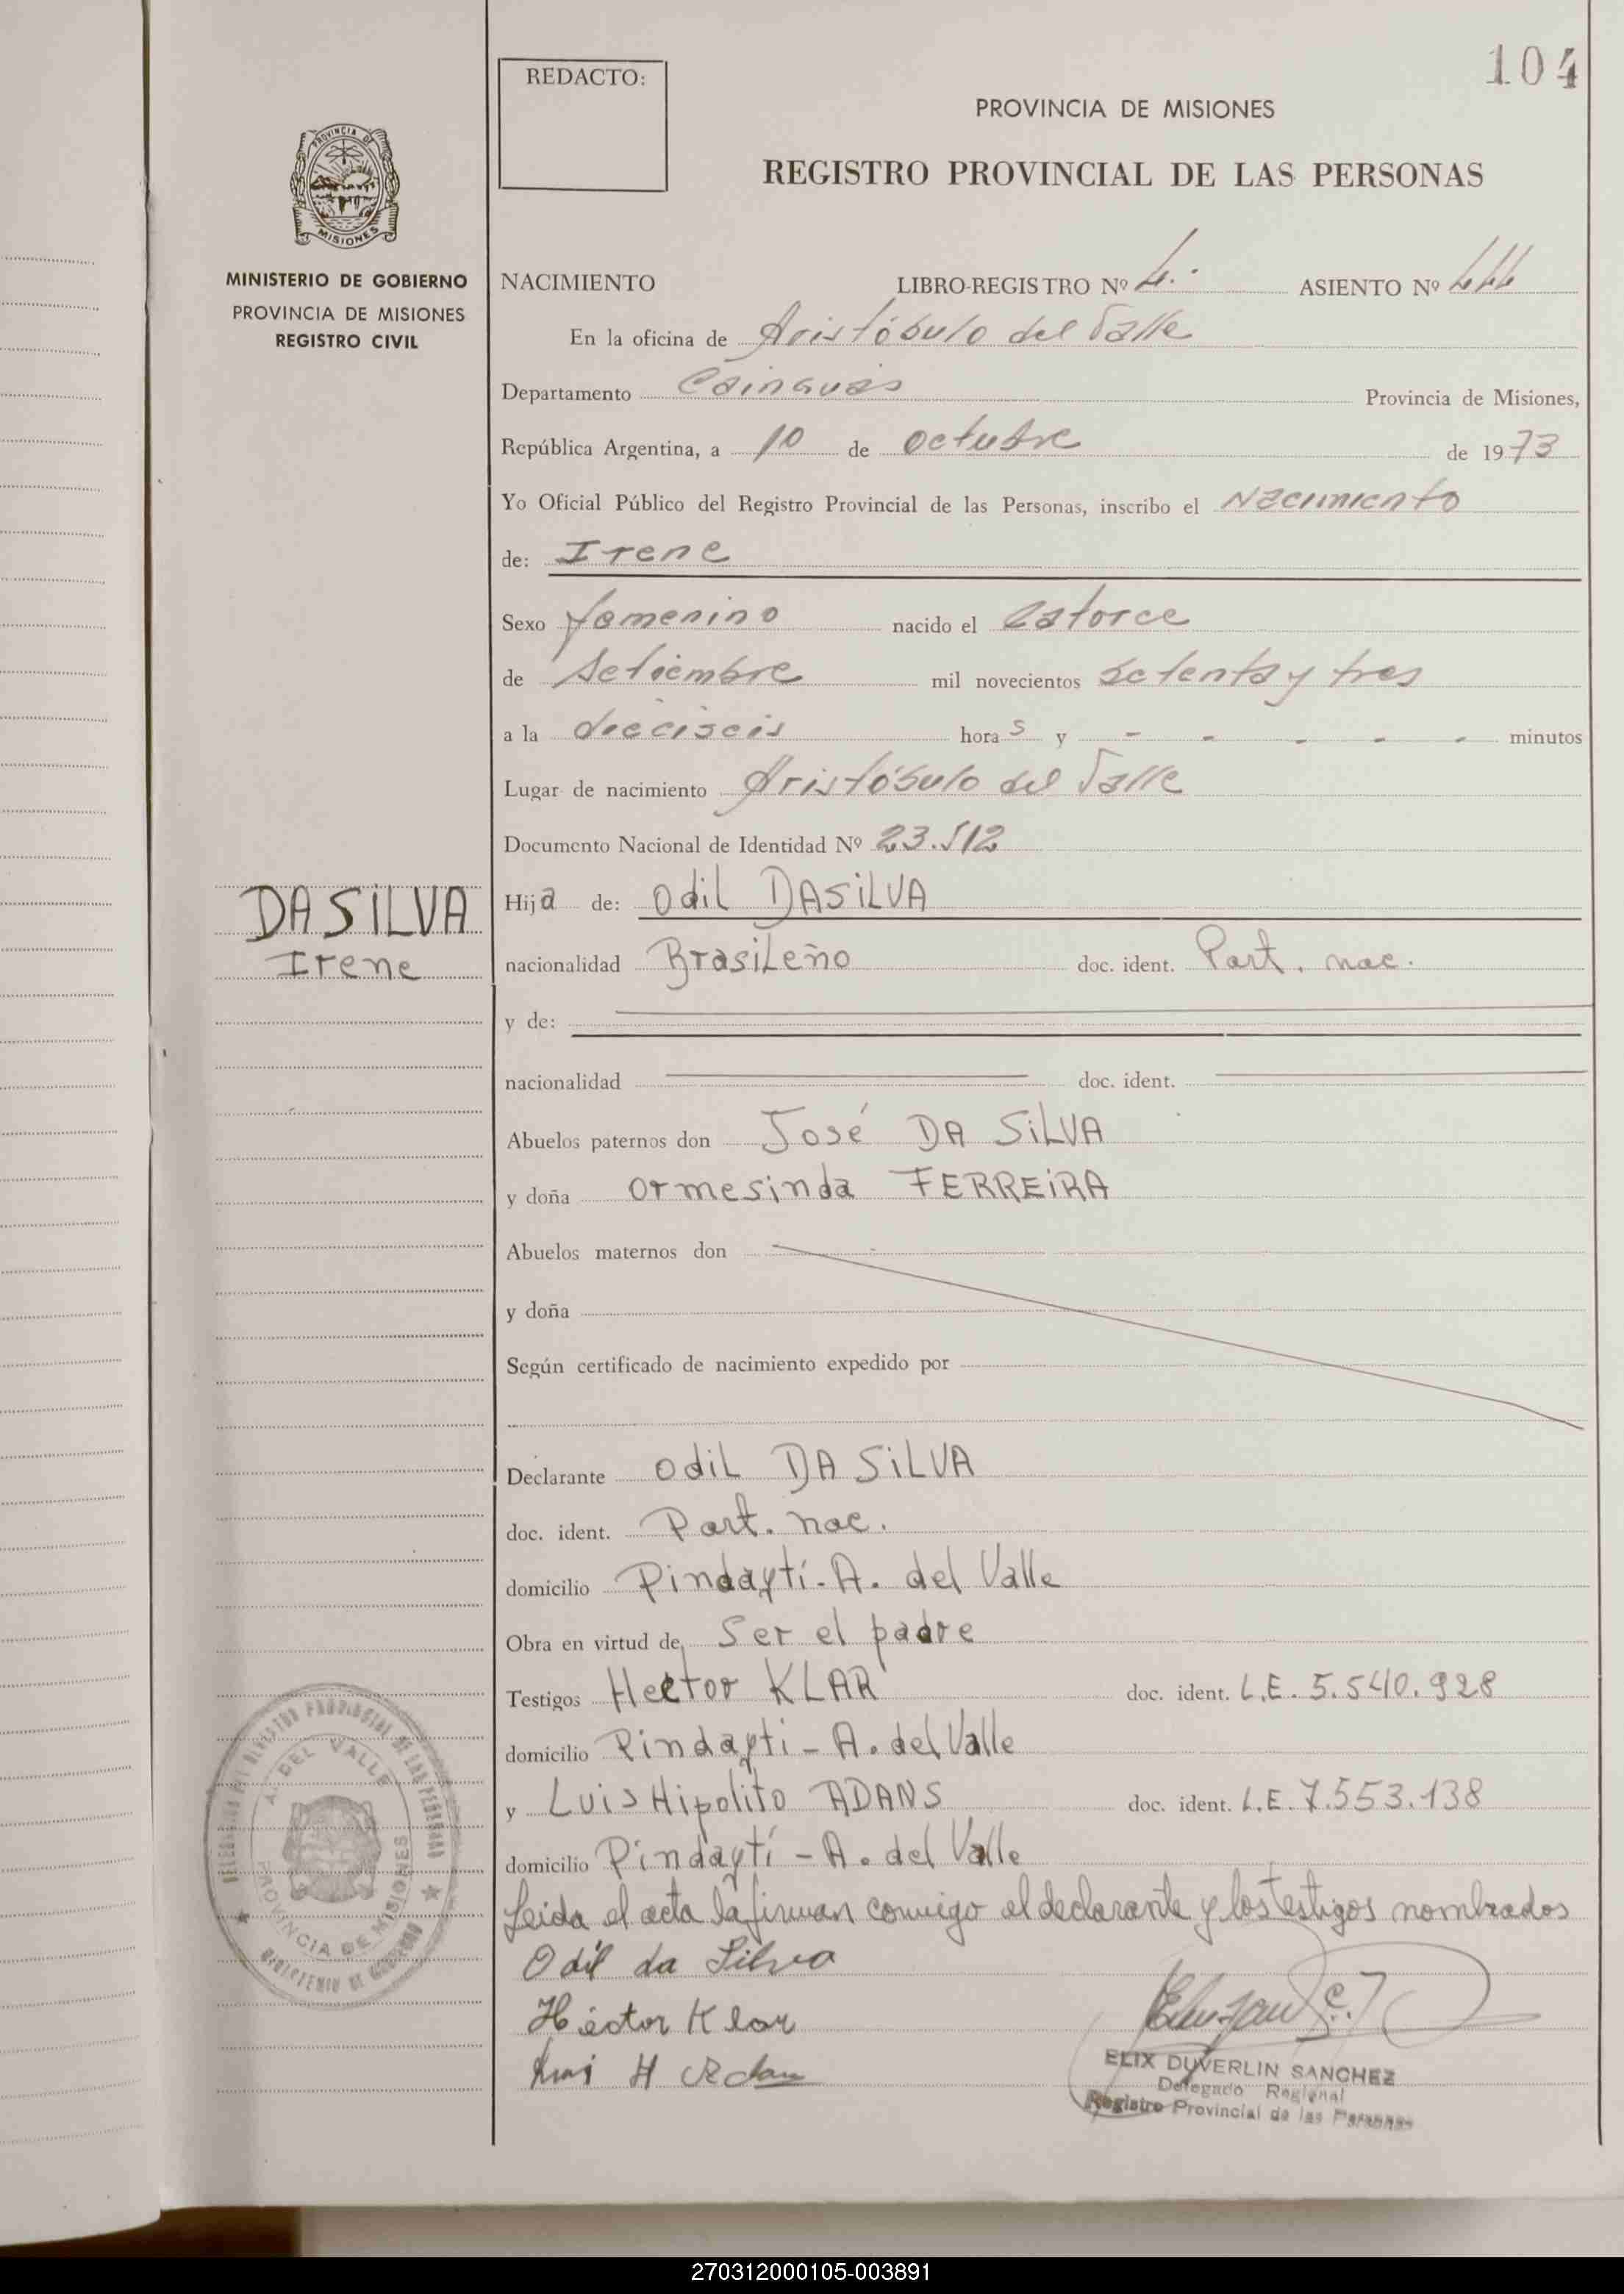 104
REDACTO:
PROVINCIA DE MISIONES
REGISTRO PROVINCIAL DE LAS PERSONAS
PROVINCIA DE
MISIONES
MINISTERIO DE GOBIERNO
PROVINCIA DE MISIONES
REGISTRO CIVIL
NACIMIENTO LIBRO-REGISTRO Nº 4. ASIENTO Nº 444
En la oficina de Aristóbulo del Valle
Departamento Cainguás Provincia de Misiones,
República Argentina, a 10 de octubre de 1973
Yo Oficial Público del Registro Provincial de las Personas, inscribo el Nacimiento
de: Irene
Sexo femenino nacido el catorce
de Setiembre mil novecientos setenta y tres
a la dieciseis hora s y - - - - - minutos
Lugar de nacimiento Aristóbulo del Valle
Documento Nacional de Identidad Nº 23.512
DASILVA
Irene
Hija de: Odil DASILVA
nacionalidad Brasileño doc. ident. Part. nac.
y de:
nacionalidad doc. ident.
Abuelos paternos don José DA SILVA
y doña Ormesinda FERREIRA
Abuelos maternos don
y doña
Según certificado de nacimiento expedido por
Declarante Odil DA SILVA
doc. ident. Part. nac.
domicilio Pindaytí - A. del Valle
Obra en virtud de Ser el padre
Testigos Hector KLAR doc. ident. L.E. 5.540.928
domicilio Pindayti - A. del Valle
y Luis Hipolito ADANS doc. ident. L.E. 7.553.138
domicilio Pindaytí - A. del Valle
Leida el acta la firman conmigo el declarante y los testigos nombrados
Odil da Silva
Héctor Klar
A. DEL VALLE
PROVINCIA DE MISIONES
ELIX DUVERLIN SANCHEZ
Delegado Regional
Registro Provincial de las Personas
270312000105-003891